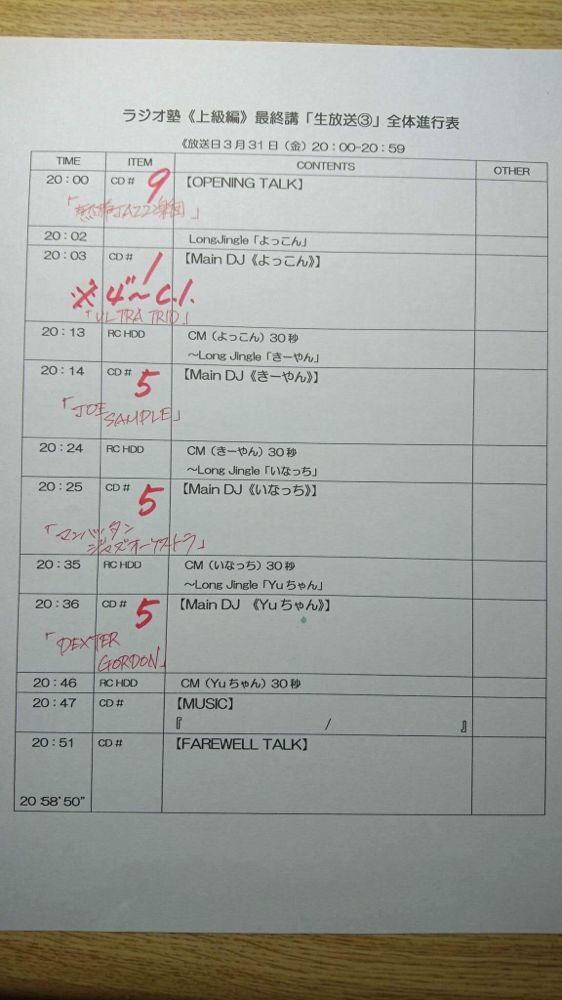 ラジオ塾《上級編》最終講「生放送③」全体進行表
《放送日3月31日（金）20：00-20：59
TIME ITEM CONTENTS OTHER
20：00 CD# 9 【OPENING TALK】
「熱帯JAZZ楽団」
20：02 LongJingle「よっこん」
20：03 CD# 1 【Main DJ《よっこん》】
※ 4"〜C.I.
「ULTRA TRIO」
20：13 RC HDD CM（よっこん）30秒
〜Long Jingle「きーやん」
20：14 CD# 5 【Main DJ《きーやん》】
「JOE
SAMPLE」
20：24 RC HDD CM（きーやん）30秒
〜Long Jingle「いなっち」
20：25 CD# 5 【Main DJ《いなっち》】
「マンハッタン
ジャズオーケストラ」
20：35 RC HDD CM（いなっち）30秒
〜Long Jingle「Yuちゃん」
20：36 CD# 5 【Main DJ 《Yuちゃん》】
「DEXTER
GORDON」
20：46 RC HDD CM（Yuちゃん）30秒
20：47 CD# 【MUSIC】
『 / 』
20：51 CD# 【FAREWELL TALK】
20:58'50"